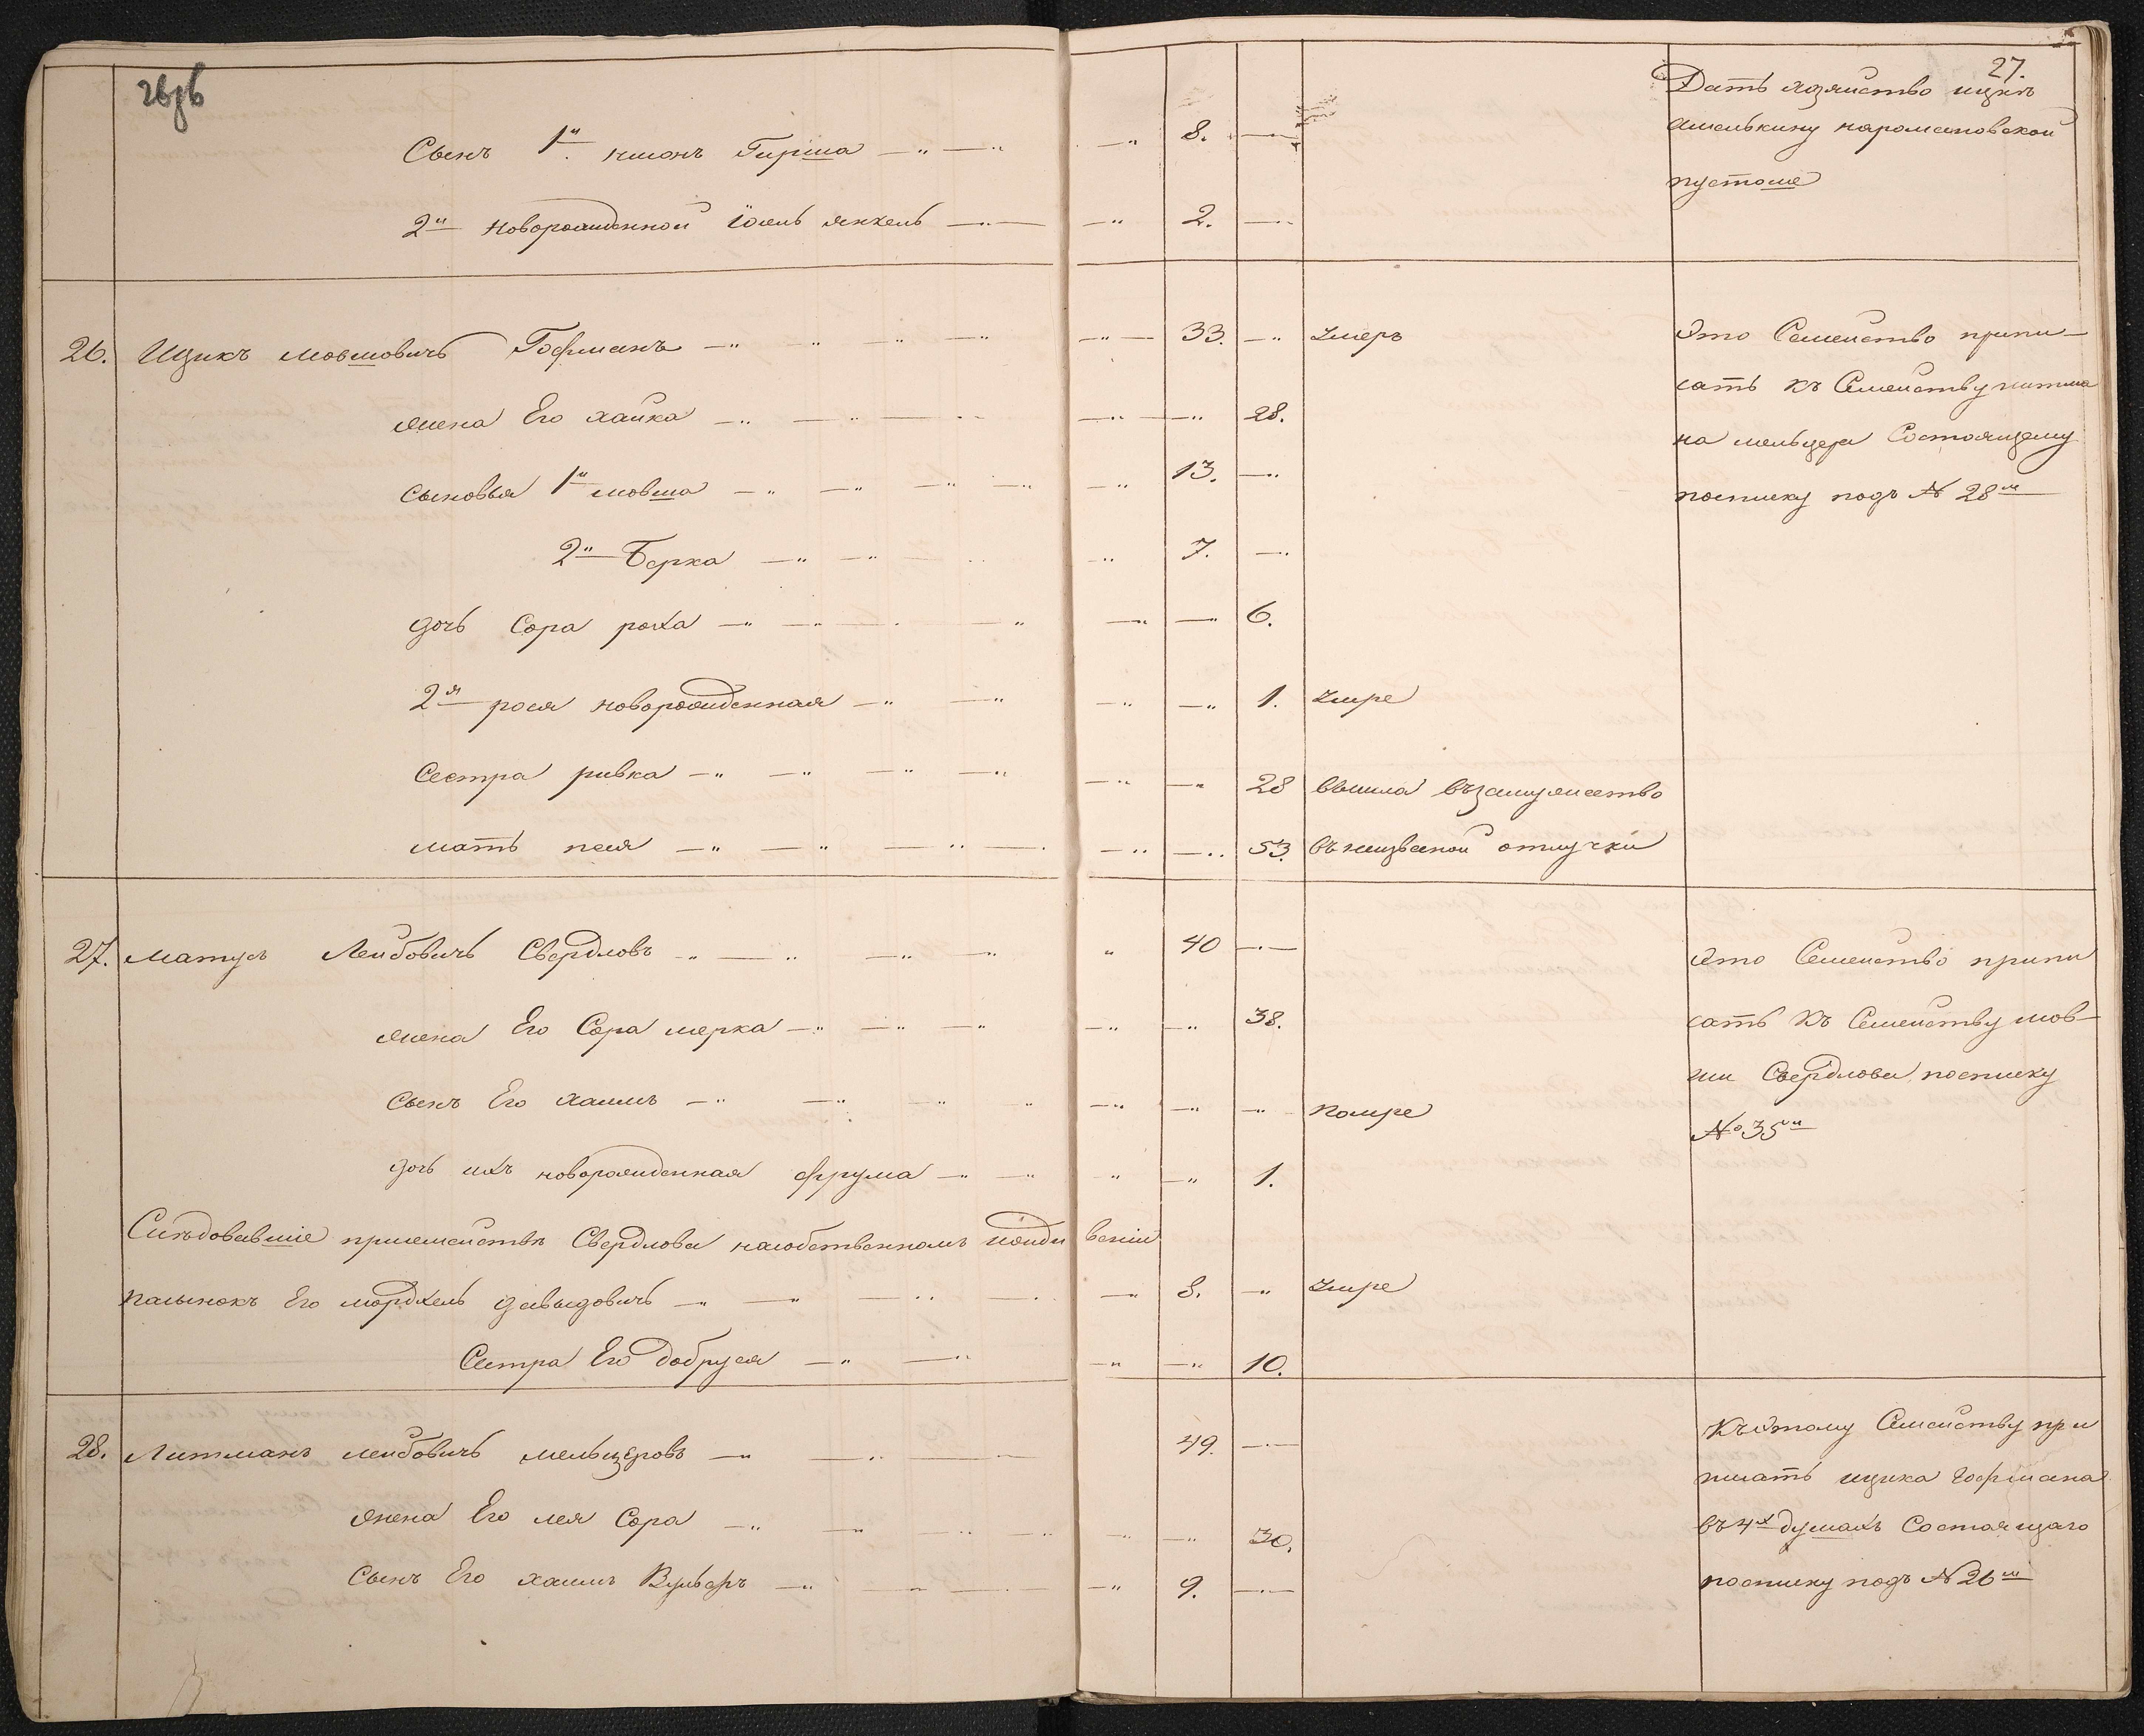 27.
Сынъ 1й. Гирша — „ — „ — „ 8. —
2й новорожденной Іоель Янкель — „ — „ 2. —
Дать хозяйство ицкѣ
пустоше
26. Ицикъ мовшовичъ Гофманъ — „ „ — „ — „ — „ 33. — „ Умеръ
жена Его хайка — „ — „ — „ 28.
сыновья 1й мовша — „ — „ — „ — „ 13. — „
2й Берка — „ — „ „ 7. —
дочь Сора роха — „ — „ — „ 6.
2я рося новорожденная — „ — „ — „ — „ 1. Умре
Сестра ривка — „ — „ — „ — „ — „ 28 вышла възамужество
мать песя — „ — „ — „ — „ 53. въ неизвѣсной отлучки
Это Семейство припи—
сать къ Семейству литма
на мельцера Состоящему
посписку подъ № 28м
27. Матусъ Лейбовичъ Свердловъ — „ — „ — „ „ 40 —
жена Его Сора мерка — „ — „ — „ — „ 38.
Сынъ Его хаимъ — „ — „ „ — „ — „ — „ помре
дочь ихъ новорожденная фрума — „ — „ „ — „ 1.
Слѣдовавшіе присемействѣ Свердлова насобственномъ иждивеніи
пасынокъ Его мордхель давыдовичъ — „ — „ — „ 8. — „ Умре
Сестра Его добруся — „ — „ — „ — „ 10.
Это Семейство припи
сать къ Семейству мов—
ши Свердлова посписку
№ 35й
28. Литманъ лейбовичъ мельцеровъ — „ — „ 49. —
жена Его лея Сора — „ — „ — „ — „ 30.
Сынъ Его хаимъ Вульфъ — „ — „ — „ 9. —
Къэтому Семейству при
писать ицика Гофмана
въ 4х душахъ Состоящаго
посписку подъ № 26м